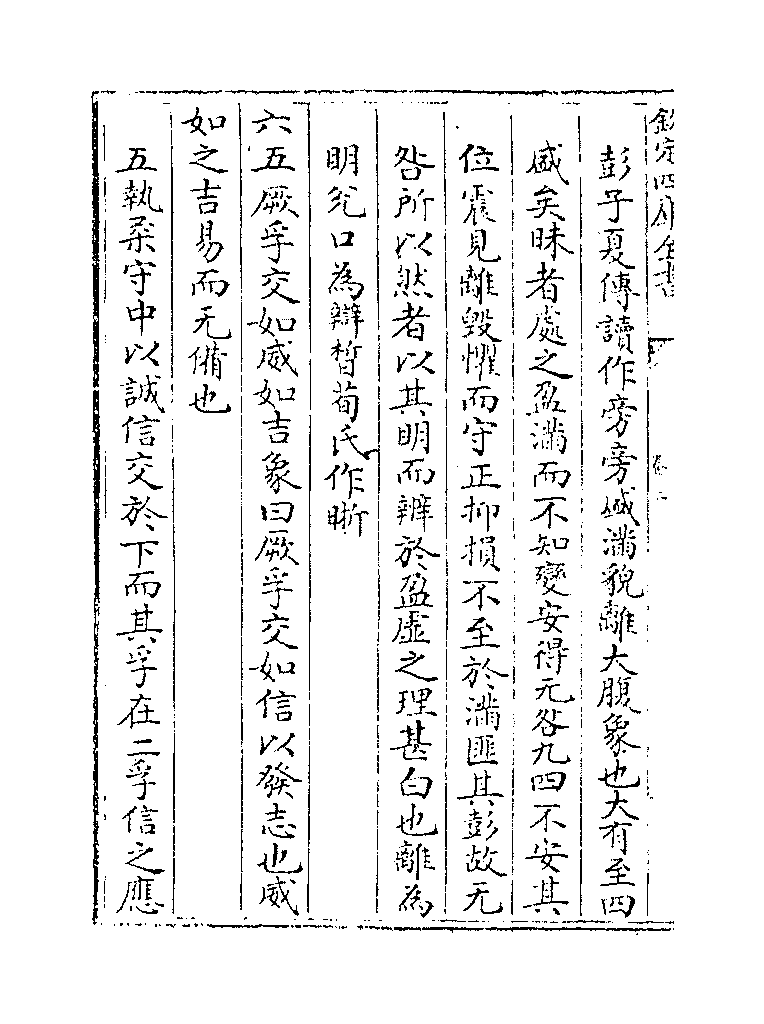 欽定四庫全書
卷二
彭子夏傳讀作旁旁盛滿貌離大腹象也大有至四
盛矣昧者處之盈滿而不知變安得无咎九四不安其
位震見離毀懼而守正抑損不至於滿匪其彭故无
咎所以然者以其明而辨於盈虛之理甚白也離為
明兊口為辯晳荀氏作晰
六五厥孚交如威如吉象曰厥孚交如信以發志也威
如之吉易而无備也
五執柔守中以誠信交於下而其孚在二孚信之應